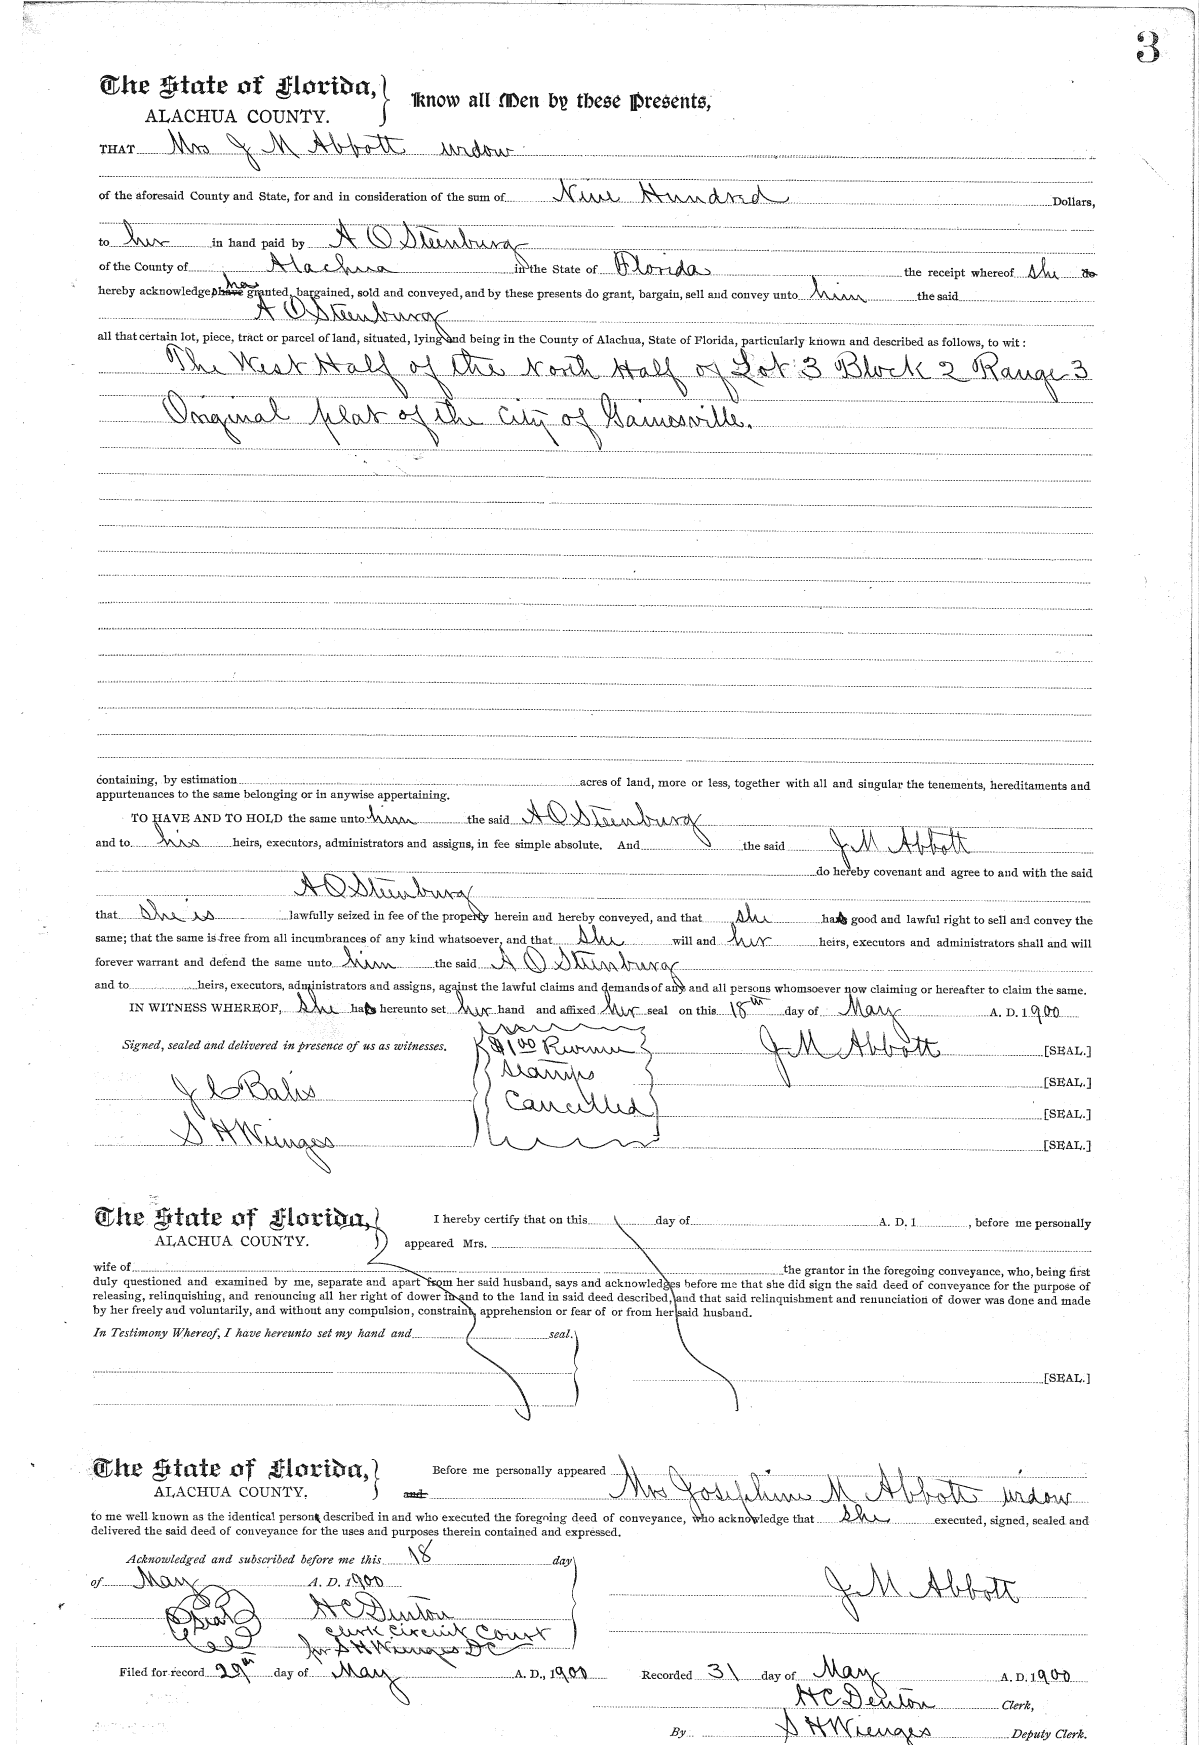 3
The State of Florida, Know all Men by these Presents,
ALACHUA COUNTY.
THAT Mrs J M Abbott widow
of the aforesaid County and State, for and in consideration of the sum of Nine Hundred Dollars,
to her in hand paid by A O Steenburg
of the County of Alachua in the State of Florida the receipt whereof she do
hereby acknowledge have has granted, bargained, sold and conveyed, and by these presents do grant, bargain, sell and convey unto him the said
A O Steenburg
all that certain lot, piece, tract or parcel of land, situated, lying and being in the County of Alachua, State of Florida, particularly known and described as follows, to wit:
The West Half of the North Half of Lot 3 Block 2 Range 3
Original plat of the City of Gainesville.
containing, by estimation acres of land, more or less, together with all and singular the tenements, hereditaments and
appurtenances to the same belonging or in anywise appertaining.
TO HAVE AND TO HOLD the same unto him the said A O Steenburg
and to his heirs, executors, administrators and assigns, in fee simple absolute. And the said J M Abbott
do hereby covenant and agree to and with the said
A O Steenburg
that she is lawfully seized in fee of the property herein and hereby conveyed, and that she has good and lawful right to sell and convey the
same; that the same is free from all incumbrances of any kind whatsoever, and that she will and her heirs, executors and administrators shall and will
forever warrant and defend the same unto him the said A O Steenburg
and to heirs, executors, administrators and assigns, against the lawful claims and demands of any and all persons whomsoever now claiming or hereafter to claim the same.
IN WITNESS WHEREOF, She has hereunto set her hand and affixed her seal on this 18th day of May A. D. 1900
Signed, sealed and delivered in presence of us as witnesses. $1.00 Revenue J M Abbott [SEAL.]
Stamps [SEAL.]
J C Balis Cancelled [SEAL.]
S H Wienges [SEAL.]
The State of Florida, I hereby certify that on this day of A. D. 1 , before me personally
ALACHUA COUNTY. appeared Mrs.
wife of the grantor in the foregoing conveyance, who, being first
duly questioned and examined by me, separate and apart from her said husband, says and acknowledges before me that she did sign the said deed of conveyance for the purpose of
releasing, relinquishing, and renouncing all her right of dower in and to the land in said deed described, and that said relinquishment and renunciation of dower was done and made
by her freely and voluntarily, and without any compulsion, constraint, apprehension or fear of or from her said husband.
In Testimony Whereof, I have hereunto set my hand and seal.
[SEAL.]
The State of Florida, Before me personally appeared Mrs Josephine M Abbott widow
ALACHUA COUNTY. and
to me well known as the identical person described in and who executed the foregoing deed of conveyance, who acknowledge that she executed, signed, sealed and
delivered the said deed of conveyance for the uses and purposes therein contained and expressed.
Acknowledged and subscribed before me this 18 day
of May A. D. 1900 J M Abbott
Seal H C Denton
Clerk Circuit Court
per S H Wienges D C
Filed for record 29th day of May A. D., 1900 Recorded 31 day of May A. D. 1900
H C Denton Clerk,
By S H Wienges Deputy Clerk.